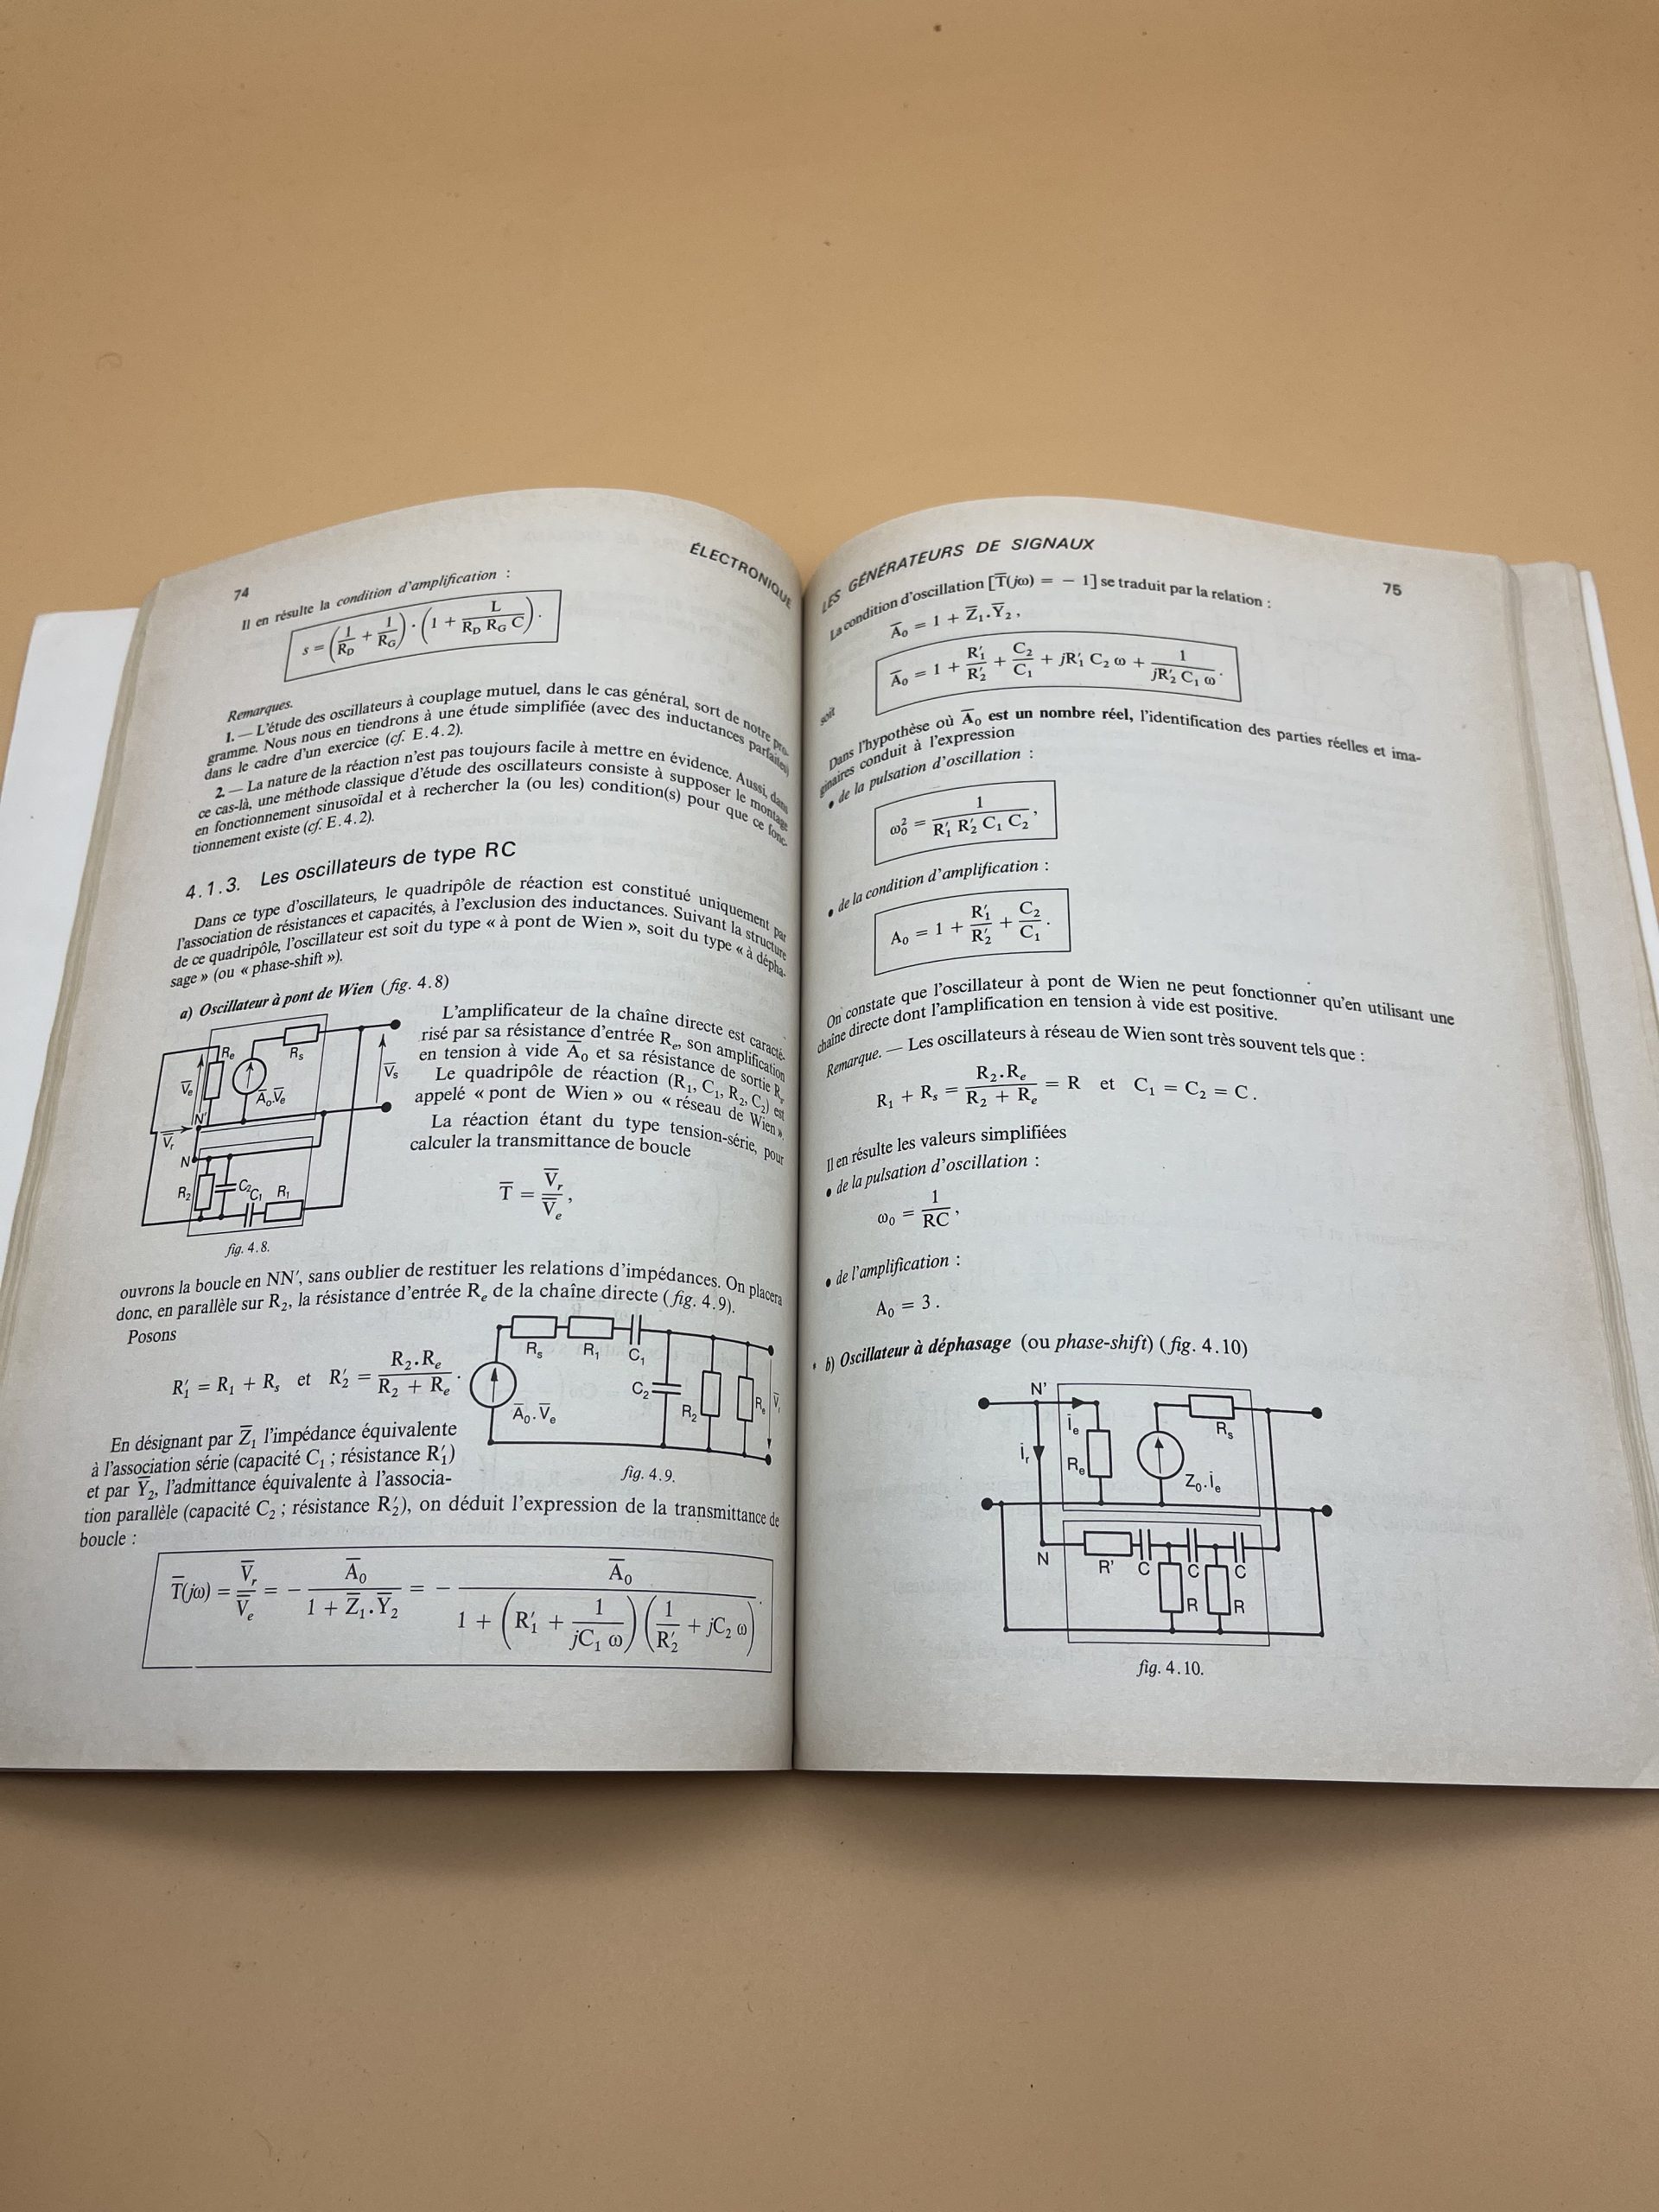 74
ÉLECTRONIQUE
Il en résulte la condition d'amplification :
s = (1/R_D + 1/R_G) · (1 + L/(R_D R_G C)).
Remarques.
1. — L'étude des oscillateurs à couplage mutuel, dans le cas général, sort de notre pro-
gramme. Nous nous en tiendrons à une étude simplifiée (avec des inductances parfaites)
dans le cadre d'un exercice (cf. E.4.2).
2. — La nature de la réaction n'est pas toujours facile à mettre en évidence. Aussi, dans
ce cas-là, une méthode classique d'étude des oscillateurs consiste à supposer le montage
en fonctionnement sinusoïdal et à rechercher la (ou les) condition(s) pour que ce fonc-
tionnement existe (cf. E.4.2).
4.1.3. Les oscillateurs de type RC
Dans ce type d'oscillateurs, le quadripôle de réaction est constitué uniquement par
l'association de résistances et capacités, à l'exclusion des inductances. Suivant la structure
de ce quadripôle, l'oscillateur est soit du type « à pont de Wien », soit du type « à dépha-
sage » (ou « phase-shift »).
a) Oscillateur à pont de Wien (fig. 4.8)
R_e R_s V̄_e A_0.V̄_e V̄_s
V̄_r N' N
R_2 C_2 C_1 R_1
fig. 4.8.
L'amplificateur de la chaîne directe est caracté-
risé par sa résistance d'entrée R_e, son amplification
en tension à vide Ā_0 et sa résistance de sortie R_s.
Le quadripôle de réaction (R_1, C_1, R_2, C_2) est
appelé « pont de Wien » ou « réseau de Wien ».
La réaction étant du type tension-série, pour
calculer la transmittance de boucle
T̄ = V̄_r/V̄_e,
ouvrons la boucle en NN', sans oublier de restituer les relations d'impédances. On placera
donc, en parallèle sur R_2, la résistance d'entrée R_e de la chaîne directe (fig. 4.9).
Posons
R'_1 = R_1 + R_s et R'_2 = R_2.R_e/(R_2 + R_e).
R_s R_1 C_1
Ā_0.V̄_e C_2 R_2 R_e V̄_r
fig. 4.9.
En désignant par Z̄_1 l'impédance équivalente
à l'association série (capacité C_1 ; résistance R'_1)
et par Ȳ_2, l'admittance équivalente à l'associa-
tion parallèle (capacité C_2 ; résistance R'_2), on déduit l'expression de la transmittance de
boucle :
T̄(jω) = V̄_r/V̄_e = − Ā_0/(1 + Z̄_1.Ȳ_2) = − Ā_0/(1 + (R'_1 + 1/(jC_1 ω))(1/R'_2 + jC_2 ω)).
LES GÉNÉRATEURS DE SIGNAUX
75
La condition d'oscillation [T̄(jω) = − 1] se traduit par la relation :
Ā_0 = 1 + Z̄_1.Ȳ_2,
soit
Ā_0 = 1 + R'_1/R'_2 + C_2/C_1 + jR'_1 C_2 ω + 1/(jR'_2 C_1 ω).
Dans l'hypothèse où Ā_0 est un nombre réel, l'identification des parties réelles et ima-
ginaires conduit à l'expression
• de la pulsation d'oscillation :
ω_0² = 1/(R'_1 R'_2 C_1 C_2),
• de la condition d'amplification :
A_0 = 1 + R'_1/R'_2 + C_2/C_1.
On constate que l'oscillateur à pont de Wien ne peut fonctionner qu'en utilisant une
chaîne directe dont l'amplification en tension à vide est positive.
Remarque. — Les oscillateurs à réseau de Wien sont très souvent tels que :
R_1 + R_s = R_2.R_e/(R_2 + R_e) = R et C_1 = C_2 = C.
Il en résulte les valeurs simplifiées
• de la pulsation d'oscillation :
ω_0 = 1/RC,
• de l'amplification :
A_0 = 3.
b) Oscillateur à déphasage (ou phase-shift) (fig. 4.10)
N' i_e R_s
i_r R_e Z_0.i_e
N R' C C C
R R
fig. 4.10.